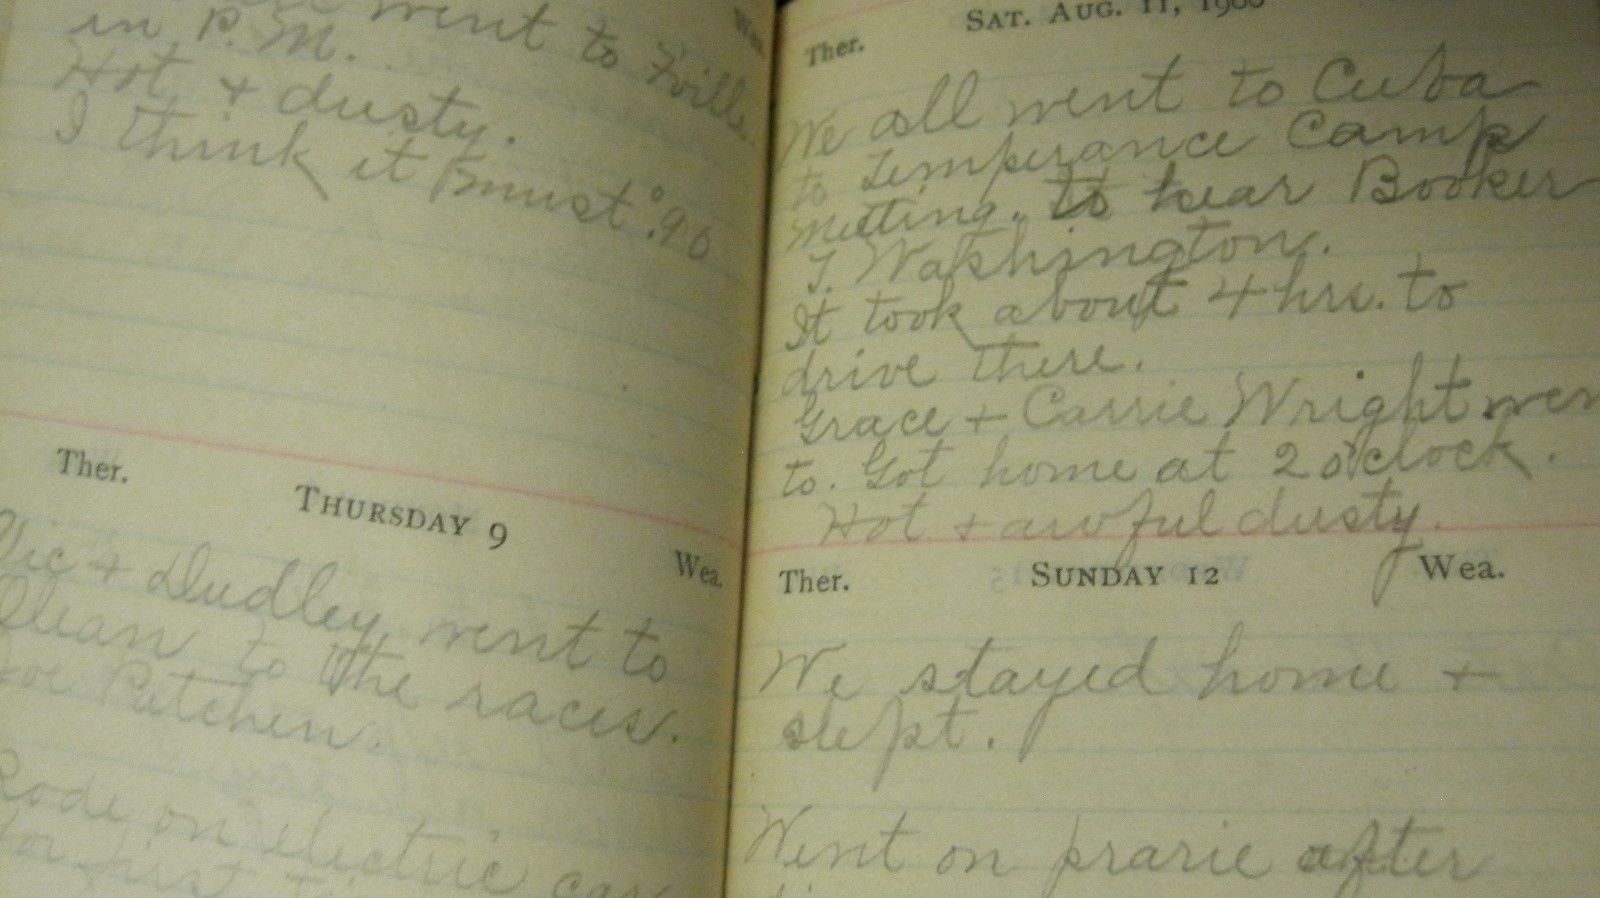 went to Fville.
in P.M.
Hot + dusty.
I think it must 96°
Ther.
THURSDAY 9
Wea.
Vic + Dudley went to
Olean to the races.
Joe Patchen.
Rode on electric car
for first
Wea.
SAT. AUG. 11, 1900
Ther.
We all went to Cuba
to Temperance Camp
Meeting. to hear Booker
T. Washington.
It took about 4 hrs. to
drive there.
Grace + Carrie Wright wen
to. Got home at 2 o'clock.
Hot + awful dusty.
Ther.
SUNDAY 12
Wea.
We stayed home +
slept.
Went on prarie after